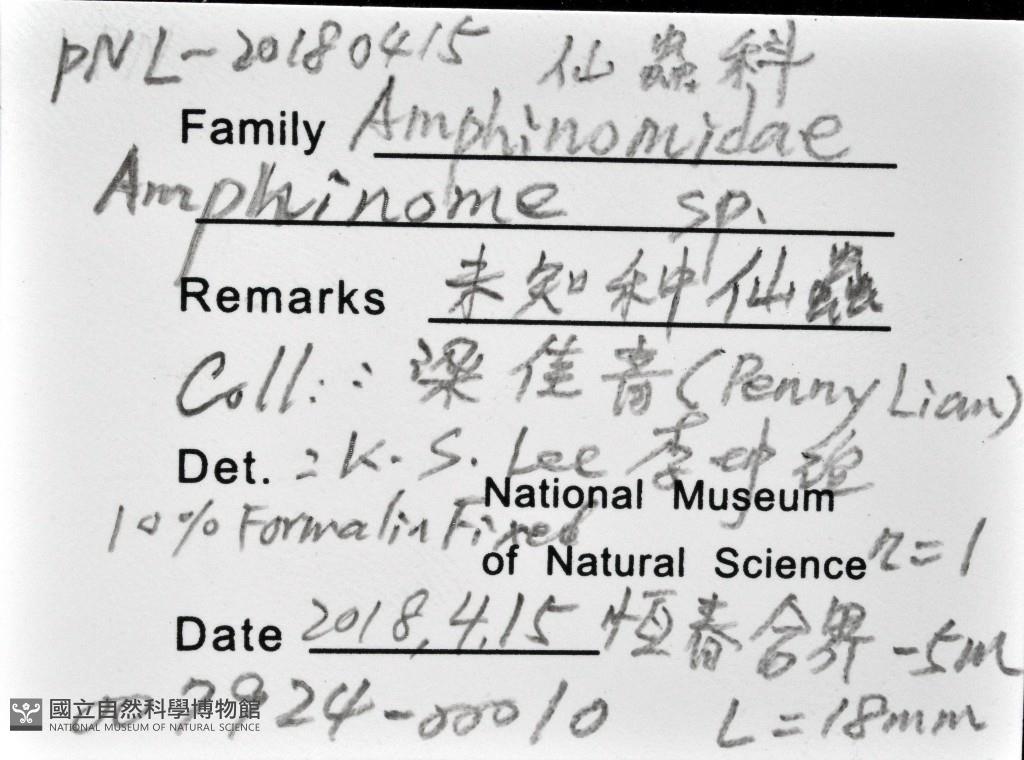 PNL-20180415 仙蟲科
Family Amphinomidae
Amphinome sp.
Remarks 未知种仙蟲
Coll: : 梁佳青 (Penny Lian)
Det. : K. S. Lee 李坤瑄
National Museum
10% Formalin Fixed
of Natural Science n=1
Date 2018,4.15 恆春合界 -5m
7924-00010 L=18mm
國立自然科學博物館
NATIONAL MUSEUM OF NATURAL SCIENCE